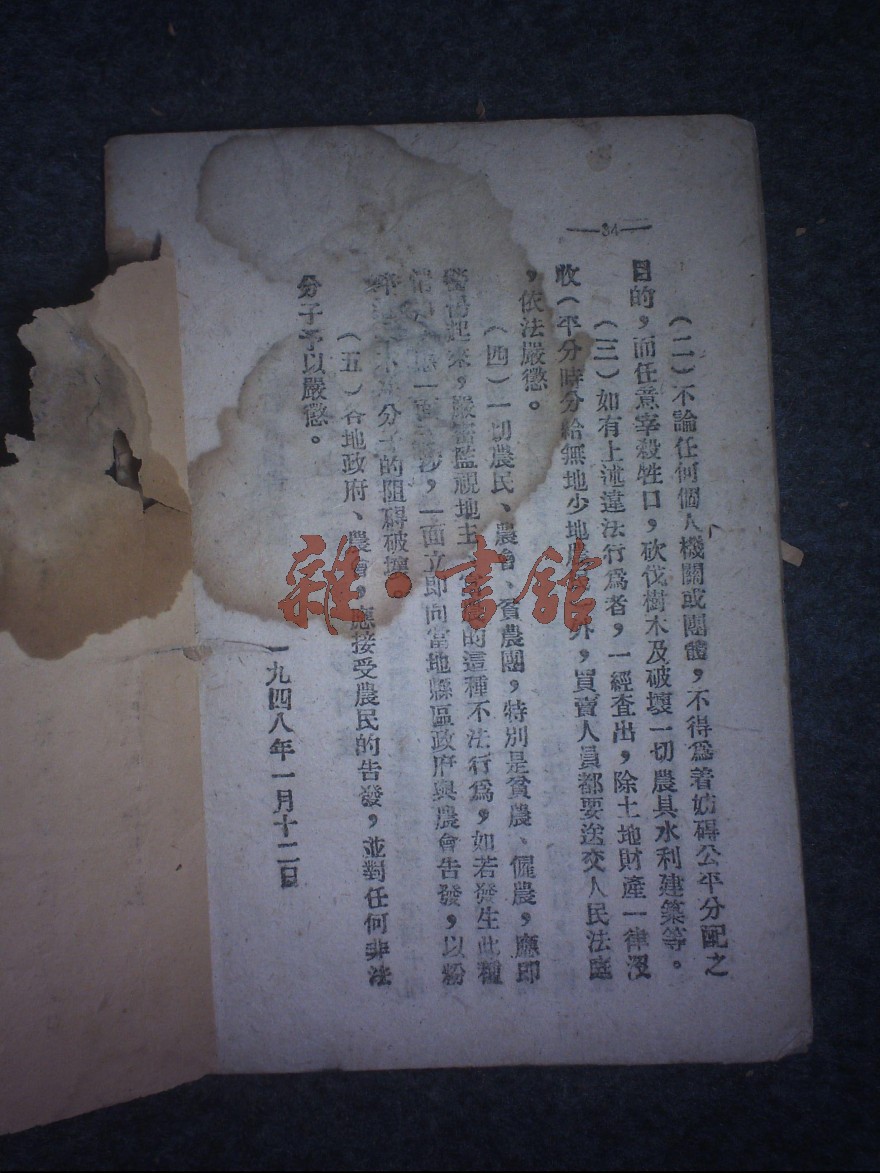 —34—
（二）不論任何個人機關或團體，不得爲着妨碍公平分配之
目的，而任意宰殺牲口，砍伐樹木及破壞一切農具水利建築等。
（三）如有上述違法行爲者，一經查出，除土地財產一律沒
收（平分時分給無地少地農 外，買賣人員都要送交人民法庭
，依法嚴懲。
（四）一切農民、農會、貧農團，特別是貧農、僱農，應即
警惕起來，嚴密監視地主 的這種不法行爲，如若發生此種
一面 ，一面立即向當地縣區政府與農會告發，以粉
分子的阻碍破壞。
（五）各地政府、農會，應接受農民的告發，並對任何非法
分子予以嚴懲。
一九四八年一月十二日
雜·書舘